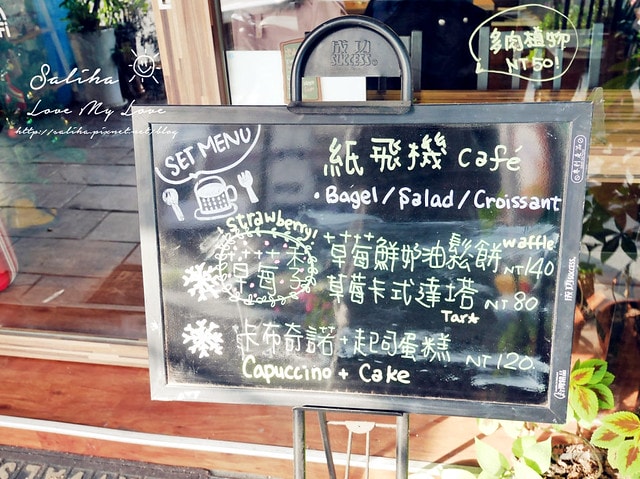 Saliha
Love My Love
http://saliha.pixnet.net/blog
多肉植物
NT50
成功
SUCCESS
SET MENU
紙飛機 Café
• Bagel / Salad / Croissant
Strawberry!
草莓季
草莓鮮奶油鬆餅 waffle NT140
草莓卡式達塔 NT80
Tar★
卡布奇諾 + 起司蛋糕 NT120
Capuccino + Cake
成功success